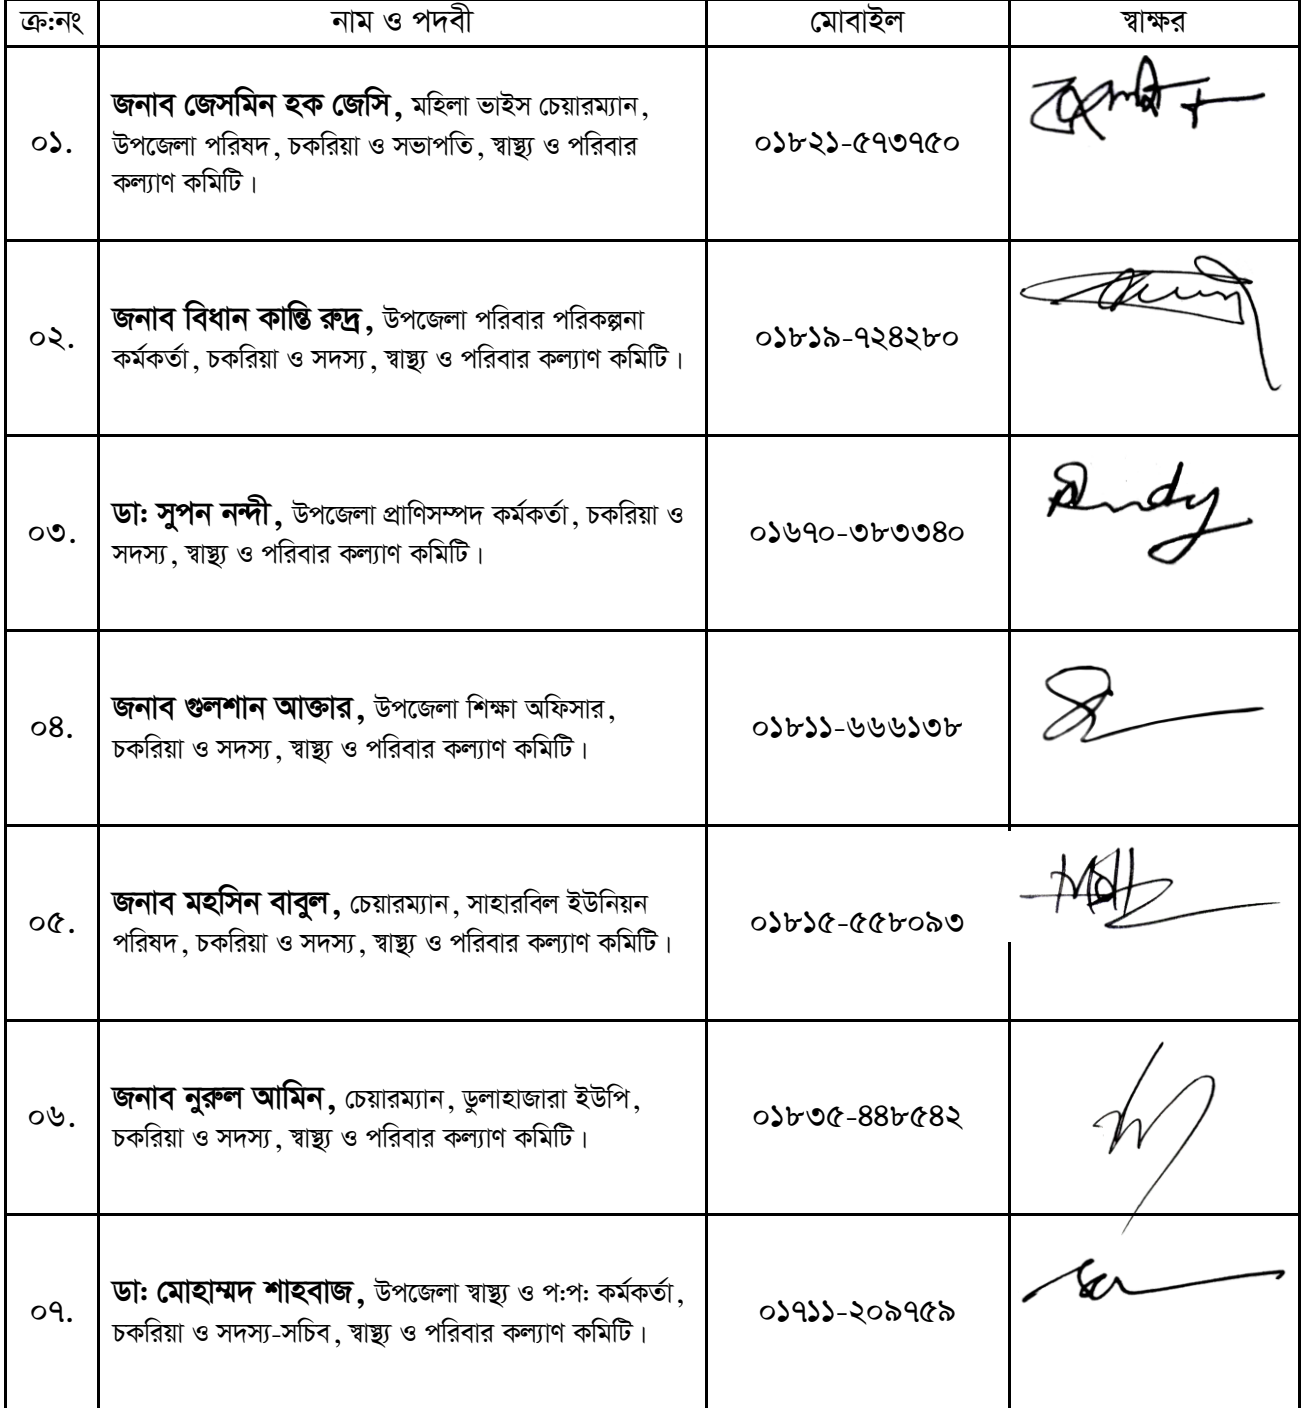 ক্র:নং নাম ও পদবী মোবাইল স্বাক্ষর
০১. জনাব জেসমিন হক জেসি, মহিলা ভাইস চেয়ারম্যান,
উপজেলা পরিষদ, চকরিয়া ও সভাপতি, স্বাস্থ্য ও পরিবার
কল্যাণ কমিটি।
০১৮২১-৫৭৩৭৫০
০২. জনাব বিধান কান্তি রুদ্র, উপজেলা পরিবার পরিকল্পনা
কর্মকর্তা, চকরিয়া ও সদস্য, স্বাস্থ্য ও পরিবার কল্যাণ কমিটি।
০১৮১৯-৭২৪২৮০
০৩. ডা: সুপন নন্দী, উপজেলা প্রাণিসম্পদ কর্মকর্তা, চকরিয়া ও
সদস্য, স্বাস্থ্য ও পরিবার কল্যাণ কমিটি।
০১৬৭০-৩৮৩৩৪০
০৪. জনাব গুলশান আক্তার, উপজেলা শিক্ষা অফিসার,
চকরিয়া ও সদস্য, স্বাস্থ্য ও পরিবার কল্যাণ কমিটি।
০১৮১১-৬৬৬১৩৮
০৫. জনাব মহসিন বাবুল, চেয়ারম্যান, সাহারবিল ইউনিয়ন
পরিষদ, চকরিয়া ও সদস্য, স্বাস্থ্য ও পরিবার কল্যাণ কমিটি।
০১৮১৫-৫৫৮০৯৩
০৬. জনাব নুরুল আমিন, চেয়ারম্যান, ডুলাহাজারা ইউপি,
চকরিয়া ও সদস্য, স্বাস্থ্য ও পরিবার কল্যাণ কমিটি।
০১৮৩৫-৪৪৮৫৪২
০৭. ডা: মোহাম্মদ শাহবাজ, উপজেলা স্বাস্থ্য ও প:প: কর্মকর্তা,
চকরিয়া ও সদস্য-সচিব, স্বাস্থ্য ও পরিবার কল্যাণ কমিটি।
০১৭১১-২০৯৭৫৯